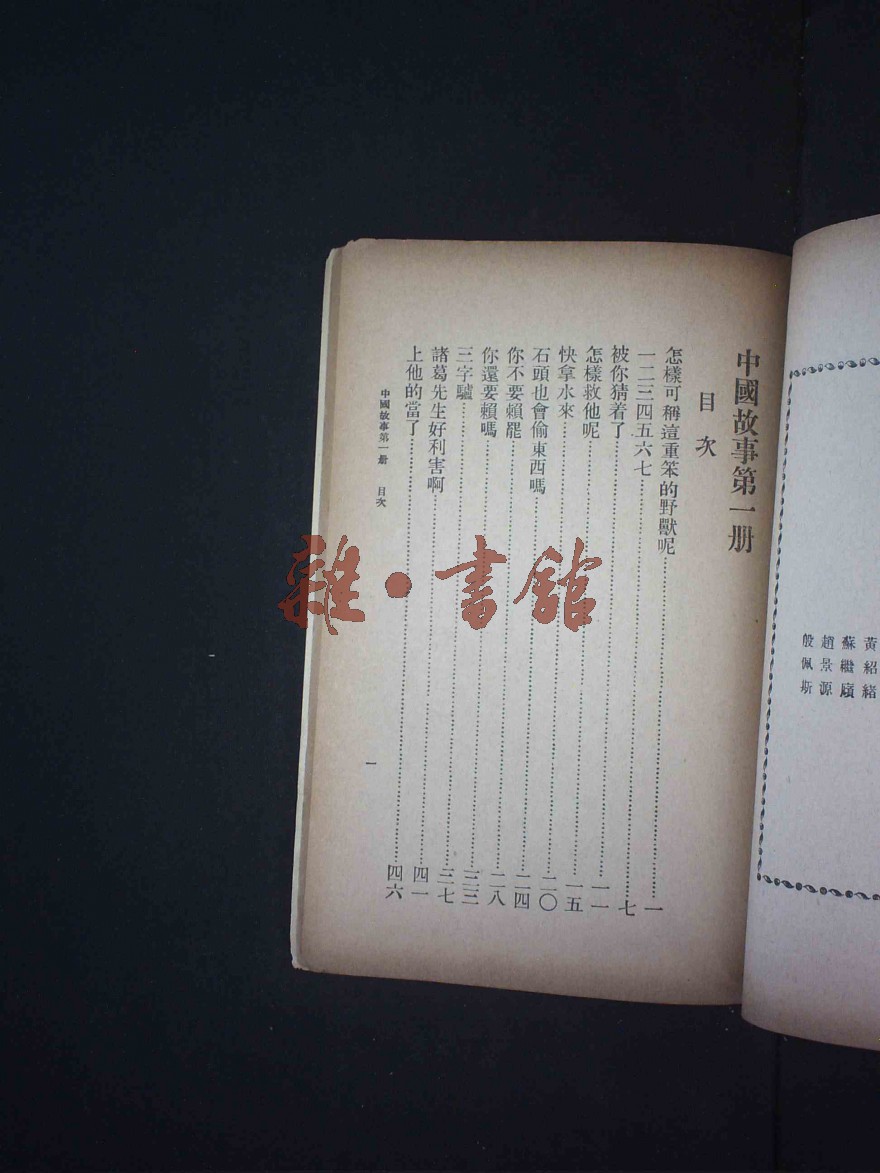 黃紹緒
蘇繼廎
趙景源
殷佩斯
中國故事第一册
目次
怎樣可稱這重笨的野獸呢……一
一二三四五六七……七
被你猜着了……一一
怎樣救他呢……一五
快拿水來……二〇
石頭也會偷東西嗎……二四
你不要賴罷……二八
你還要賴嗎……三三
三字驢……三七
諸葛先生好利害啊……四一
上他的當了……四六
中國故事第一册 目次
一
雜·書館